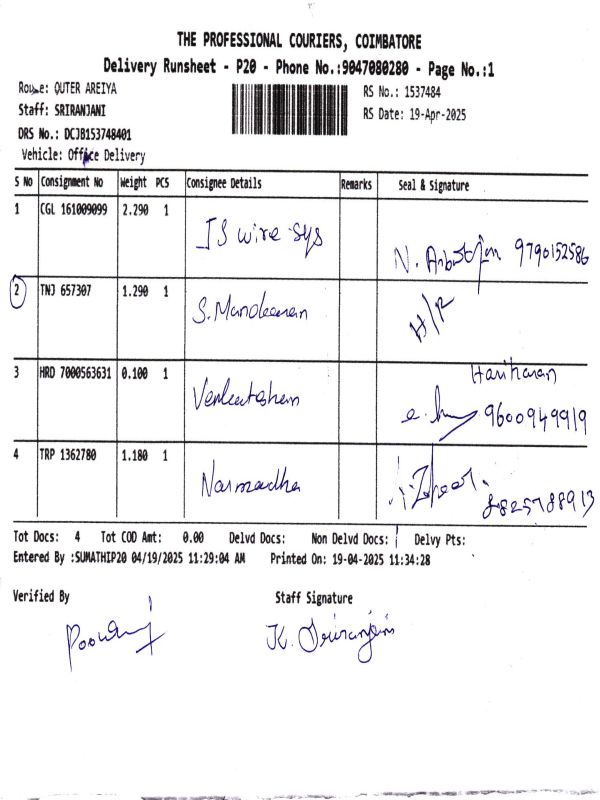 THE PROFESSIONAL COURIERS, COIMBATORE
Delivery Runsheet - P20 - Phone No.:9047080280 - Page No.:1
Route: OUTER AREIYA
RS No.: 1537484
Staff: SRIRANJANI
RS Date: 19-Apr-2025
DRS No.: DCJB153748401
Vehicle: Office Delivery
S No Consignment No Weight PCS Consignee Details Remarks Seal & Signature
1 CGL 161009099 2.290 1 IS wire sys N. 9790152586
2 TNJ 657307 1.290 1 S. H/R
3 HRD 7000563631 0.100 1 Hariharan
9600949919
4 TRP 1362780 1.180 1 Narmadha
8825788913
Tot Docs: 4 Tot COD Amt: 0.00 Delvd Docs: Non Delvd Docs: 1 Delvy Pts:
Entered By :SUMATHIP20 04/19/2025 11:29:04 AM Printed On: 19-04-2025 11:34:28
Verified By Staff Signature
K.